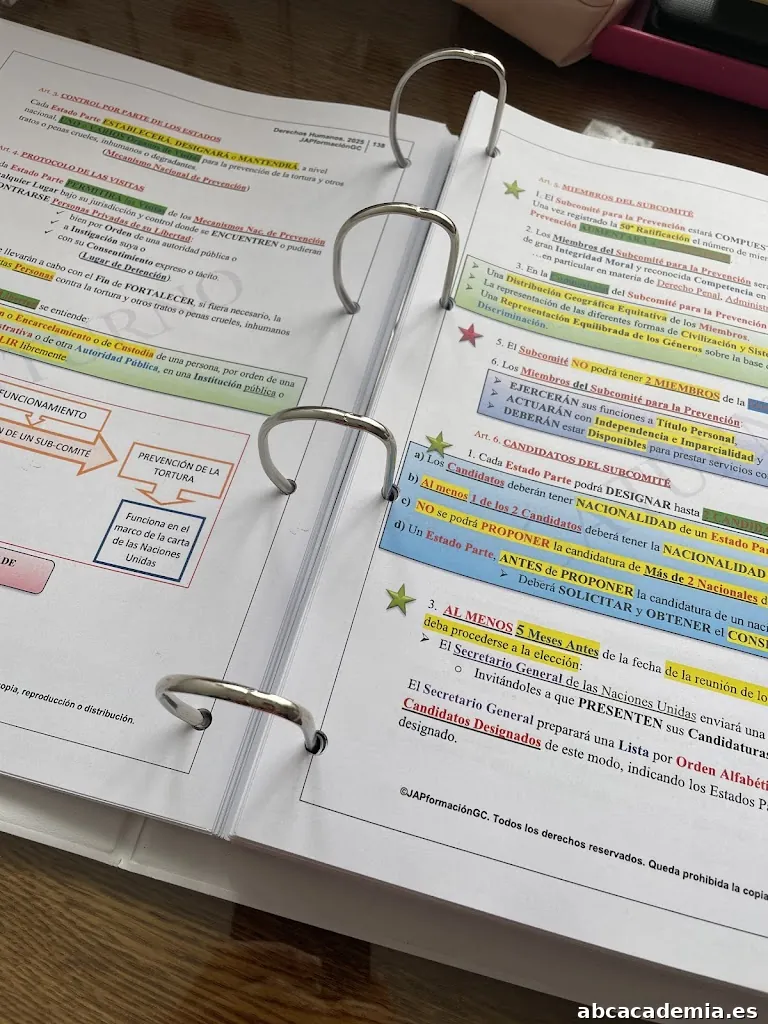 Derechos Humanos. 2025 | 138
JAPformaciónGC
Art. 3. CONTROL POR PARTE DE LOS ESTADOS
Cada Estado Parte ESTABLECERÁ, DESIGNARÁ o MANTENDRÁ, a nivel
nacional, para la prevención de la tortura y otros
tratos o penas crueles, inhumanos o degradantes.
(Mecanismo Nacional de Prevención)
Art. 4. PROTOCOLO DE LAS VISITAS
Estado Parte PERMITIRÁ las Visitas de los Mecanismos Nac. de Prevención
Lugar bajo su jurisdicción y control donde se ENCUENTREN o pudieran
Personas Privadas de su Libertad:
✓ bien por Orden de una autoridad pública o
✓ a Instigación suya o
✓ con su Consentimiento expreso o tácito.
(Lugar de Detención)
llevarán a cabo con el Fin de FORTALECER, si fuera necesario, la
Personas contra la tortura y otros tratos o penas crueles, inhumanos
se entiende:
o Encarcelamiento o de Custodia de una persona, por orden de una
o de otra Autoridad Pública, en una Institución pública o
libremente.
FUNCIONAMIENTO
DE UN SUB-COMITÉ
PREVENCIÓN DE LA
TORTURA
Funciona en el
marco de la carta
de las Naciones
Unidas
DE
copia, reproducción o distribución.
Art. 5. MIEMBROS DEL SUBCOMITÉ
1. El Subcomité para la Prevención estará
Una vez registrado la 50ª Ratificación el número de
Prevención AUMENTARÁ
2. Los Miembros del Subcomité para la Prevención
de gran Integridad Moral y reconocida Competencia en
…en particular en materia de Derecho Penal,
3. En la del Subcomité para la Prevención
➢ Una Distribución Geográfica Equitativa de los Miembros.
➢ La representación de las diferentes formas de Civilización y
➢ Una Representación Equilibrada de los Géneros sobre la base
Discriminación.
5. El Subcomité NO podrá tener 2 MIEMBROS de la
6. Los Miembros del Subcomité para la Prevención:
➢ EJERCERÁN sus funciones a Título Personal,
➢ ACTUARÁN con Independencia e Imparcialidad y
➢ DEBERÁN estar Disponibles para prestar servicios
Art. 6. CANDIDATOS DEL SUBCOMITÉ
1. Cada Estado Parte podrá DESIGNAR hasta
a) Los Candidatos deberán tener NACIONALIDAD de un Estado
b) Al menos 1 de los 2 Candidatos deberá tener la NACIONALIDAD
c) NO se podrá PROPONER la candidatura de Más de 2 Nacionales
d) Un Estado Parte, ANTES de PROPONER la candidatura de un
➢ Deberá SOLICITAR y OBTENER el
3. AL MENOS 5 Meses Antes de la fecha de la reunión de
deba procederse a la elección:
➢ El Secretario General de las Naciones Unidas enviará una
o Invitándoles a que PRESENTEN sus Candidaturas
El Secretario General preparará una Lista por Orden
Candidatos Designados de este modo, indicando los Estados
designado.
©JAPformaciónGC. Todos los derechos reservados. Queda prohibida la copia
abcacademia.es